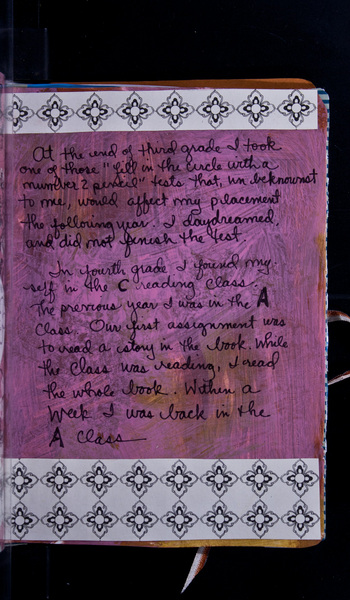 At the end of third grade I took
one of those "fill in the circle with a
number 2 pencil" tests that, un beknownst
to me, would affect my placement
the following year. I daydreamed,
and did not finish the test.
In fourth grade I found my-
self in the C reading class.
The previous year I was in the A
class. Our first assignment was
to read a story in the book. While
the class was reading, I read
the whole book. Within a
week I was back in the
A class